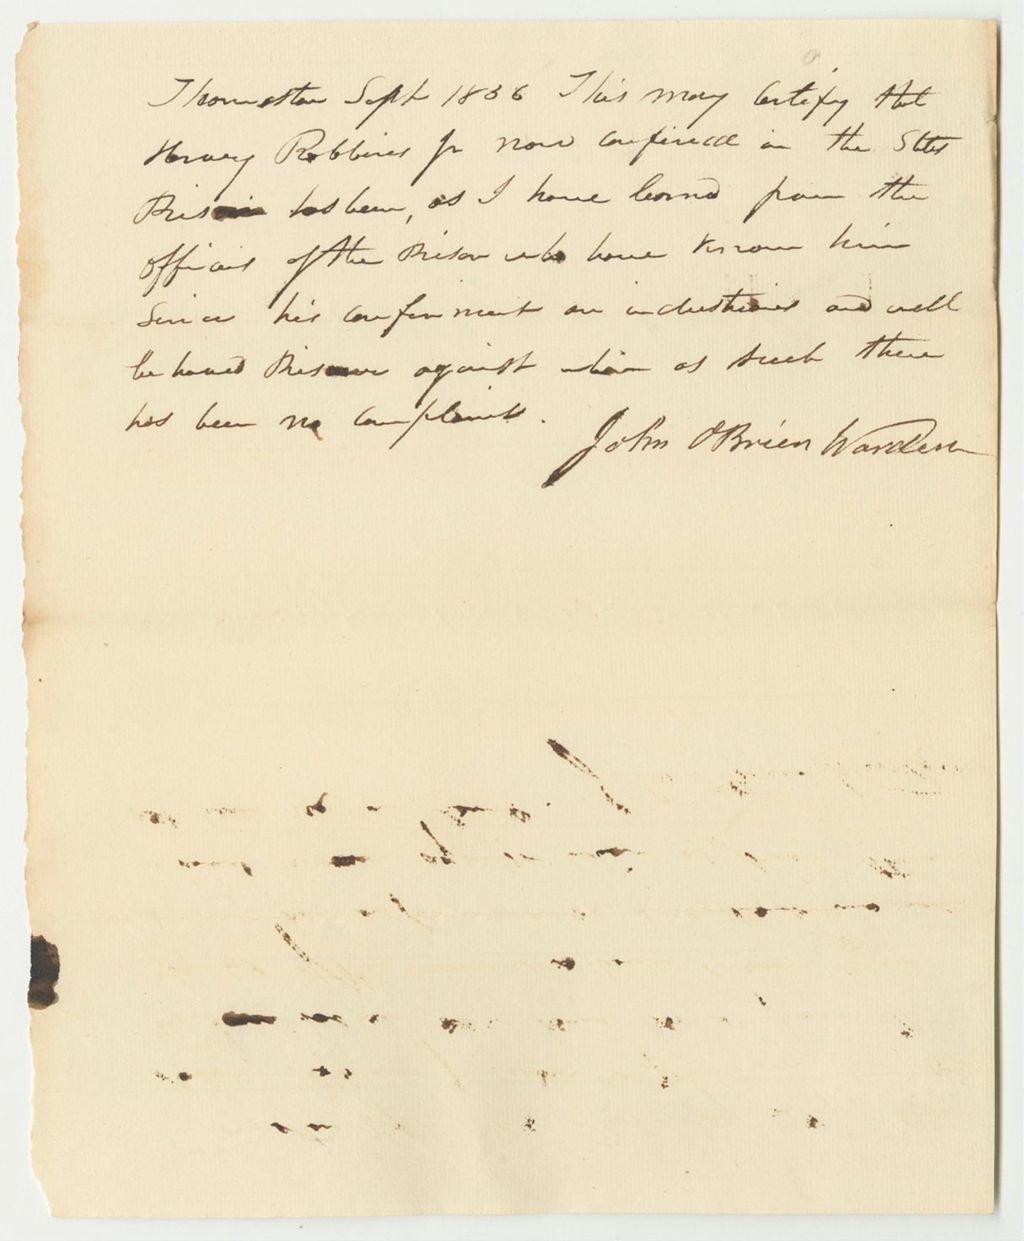 Thomaston Sept 1836 This may Certify that
Harvey Robbins Jr now confined in the States
Prison has been, as I have learned from the
officers of the Prison who have known him
Since his confinement an industrious and well
behaved Prisoner against whom as such there
has been no Complaints.
John O'Brien Warden